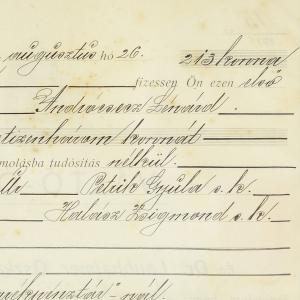 augusztus hó 26. 213 korona
fizessen Ön ezen első
Lénárd.
tizenhárom koronát
molásba tudósítás nélkül.
Petrik Gyula s. k.
Halász Zsigmond s. k.